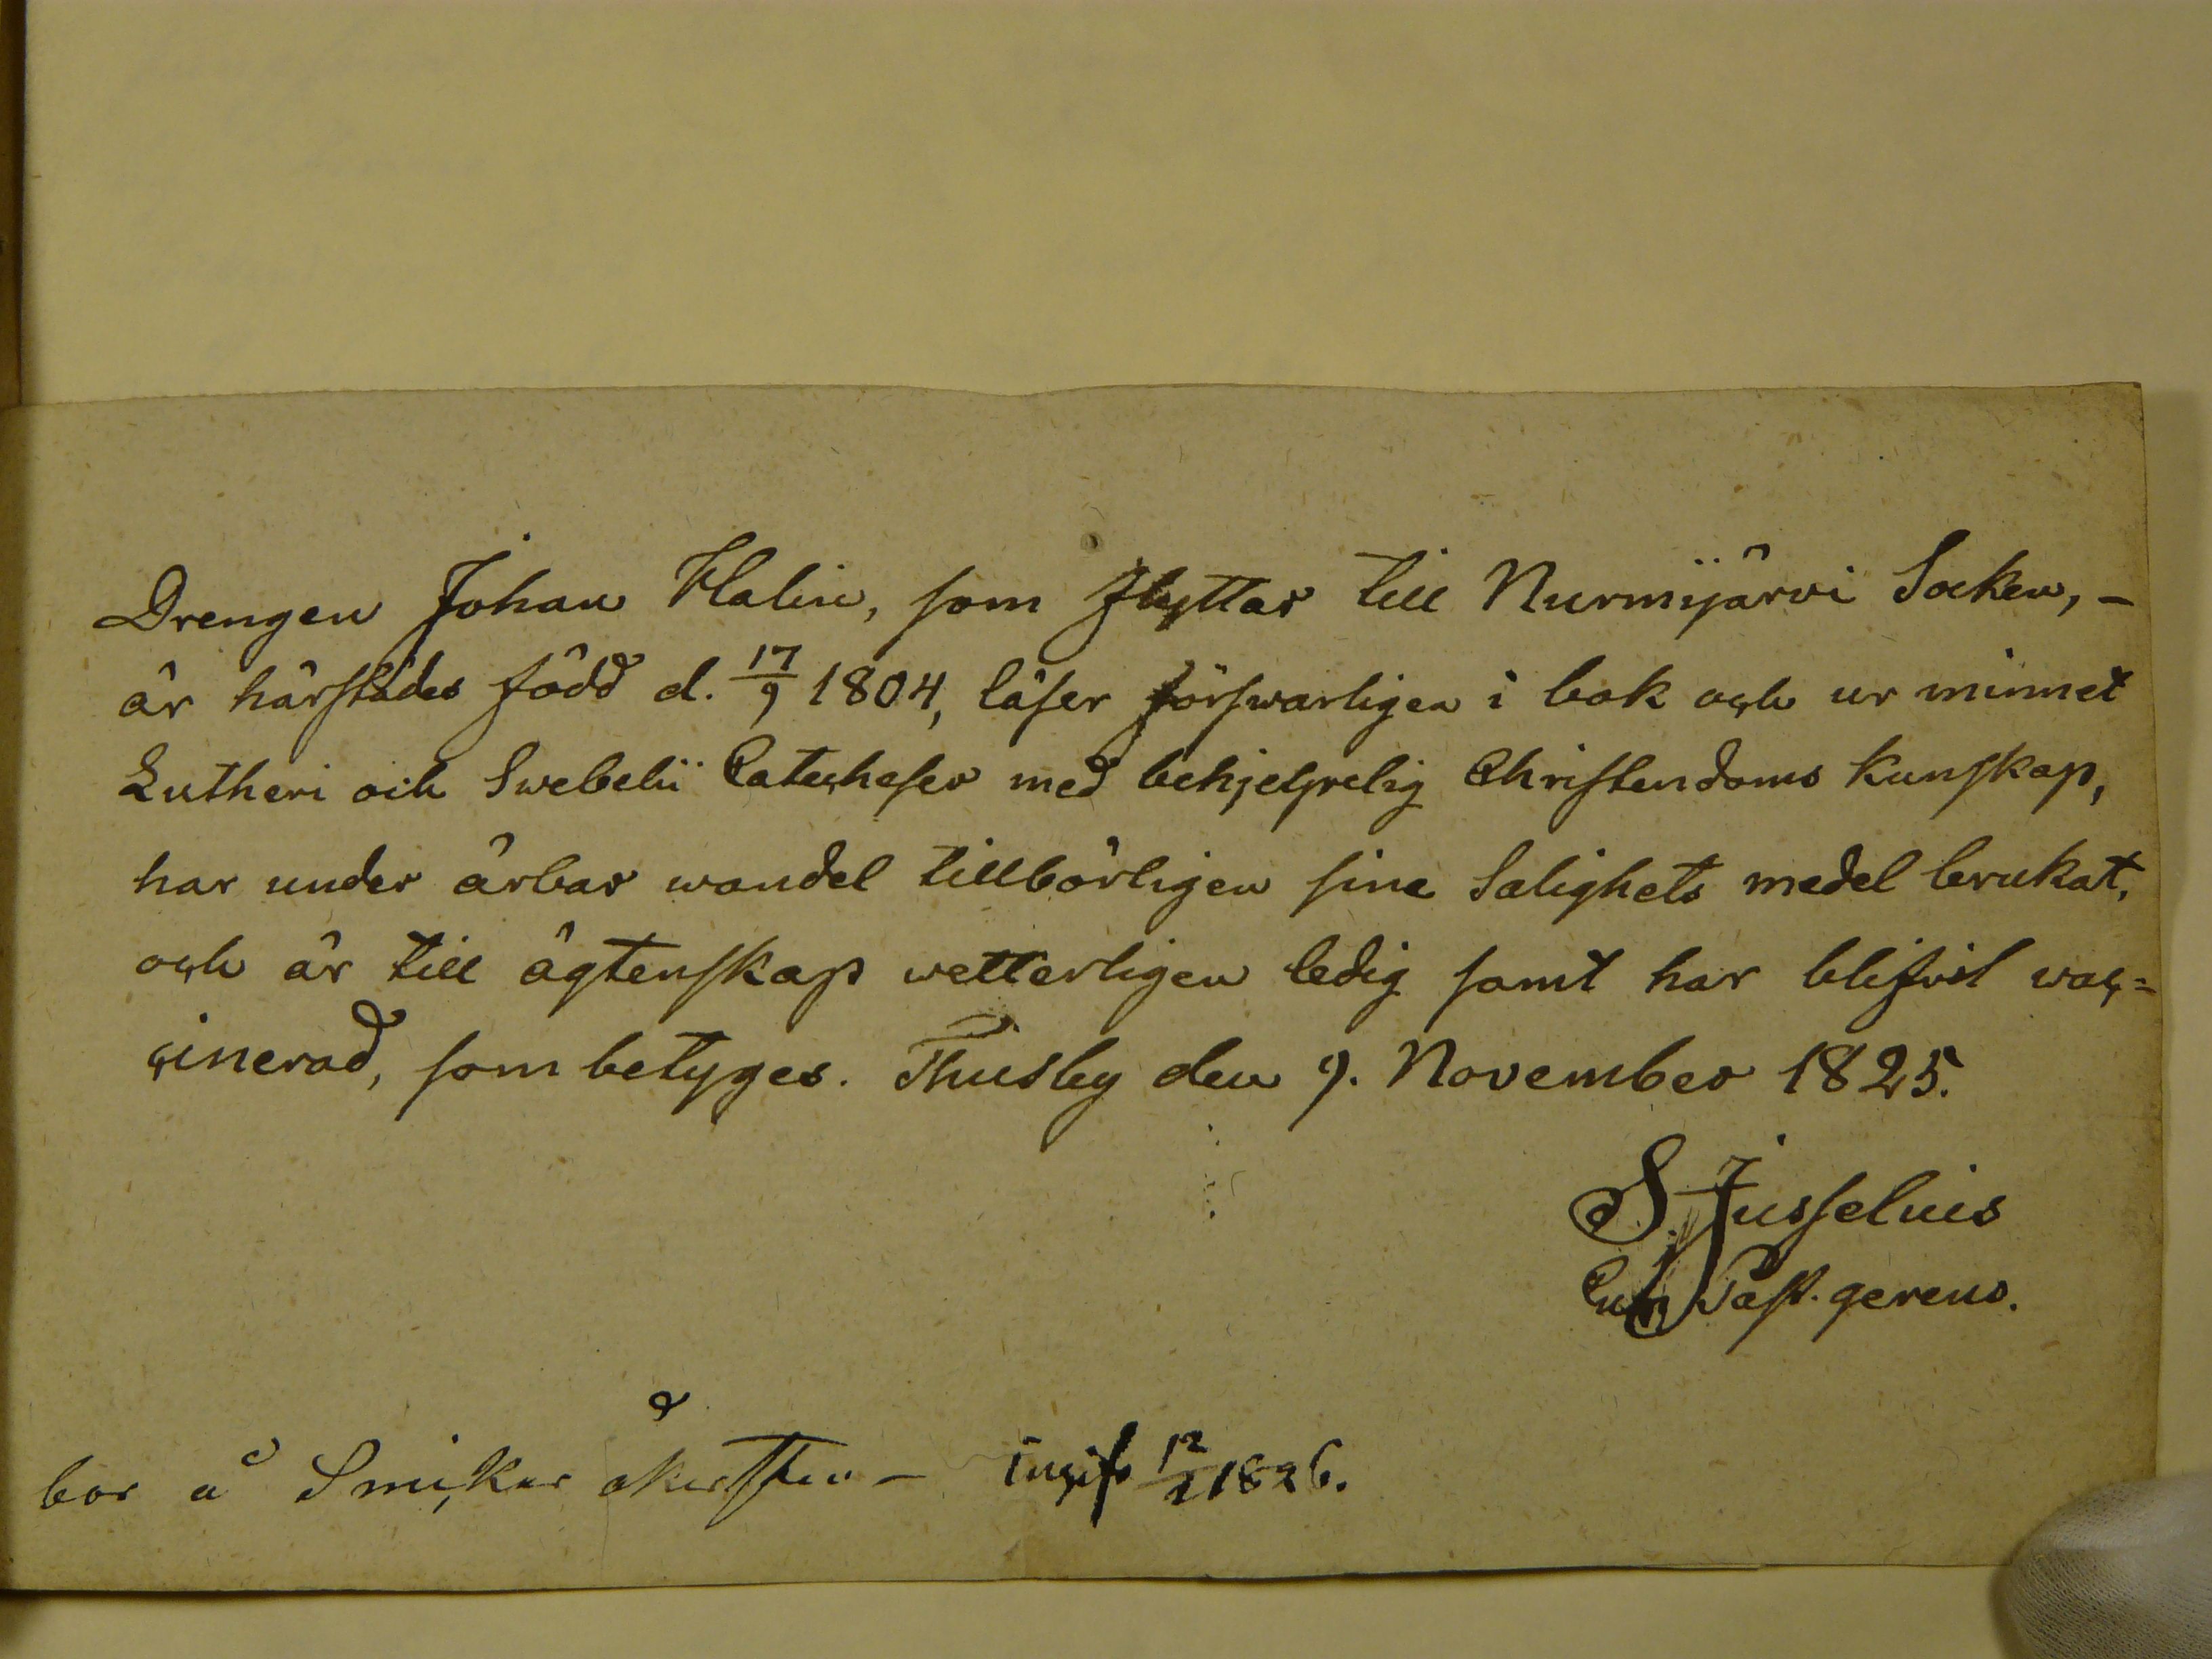 Drengen Johan Halin, som flyttar till Nurmijärvi Socken, -
är härstädes född d. 17/9 1804, läser försvarligen i bok och ur minnet
Lutheri och Swebelii Catecheser med behjelpelig Christendoms kunskap,
har under ärbar wandel tillbörligen sine Salighets medel brukat,
och är till ägtenskap wetterligen ledig samt har blifvit vac=
cinerad, som betyges. Thusby den 9. November 1825.
S. Jusselius
Past. gerens.
bor å - ingifv 12/1 1826.